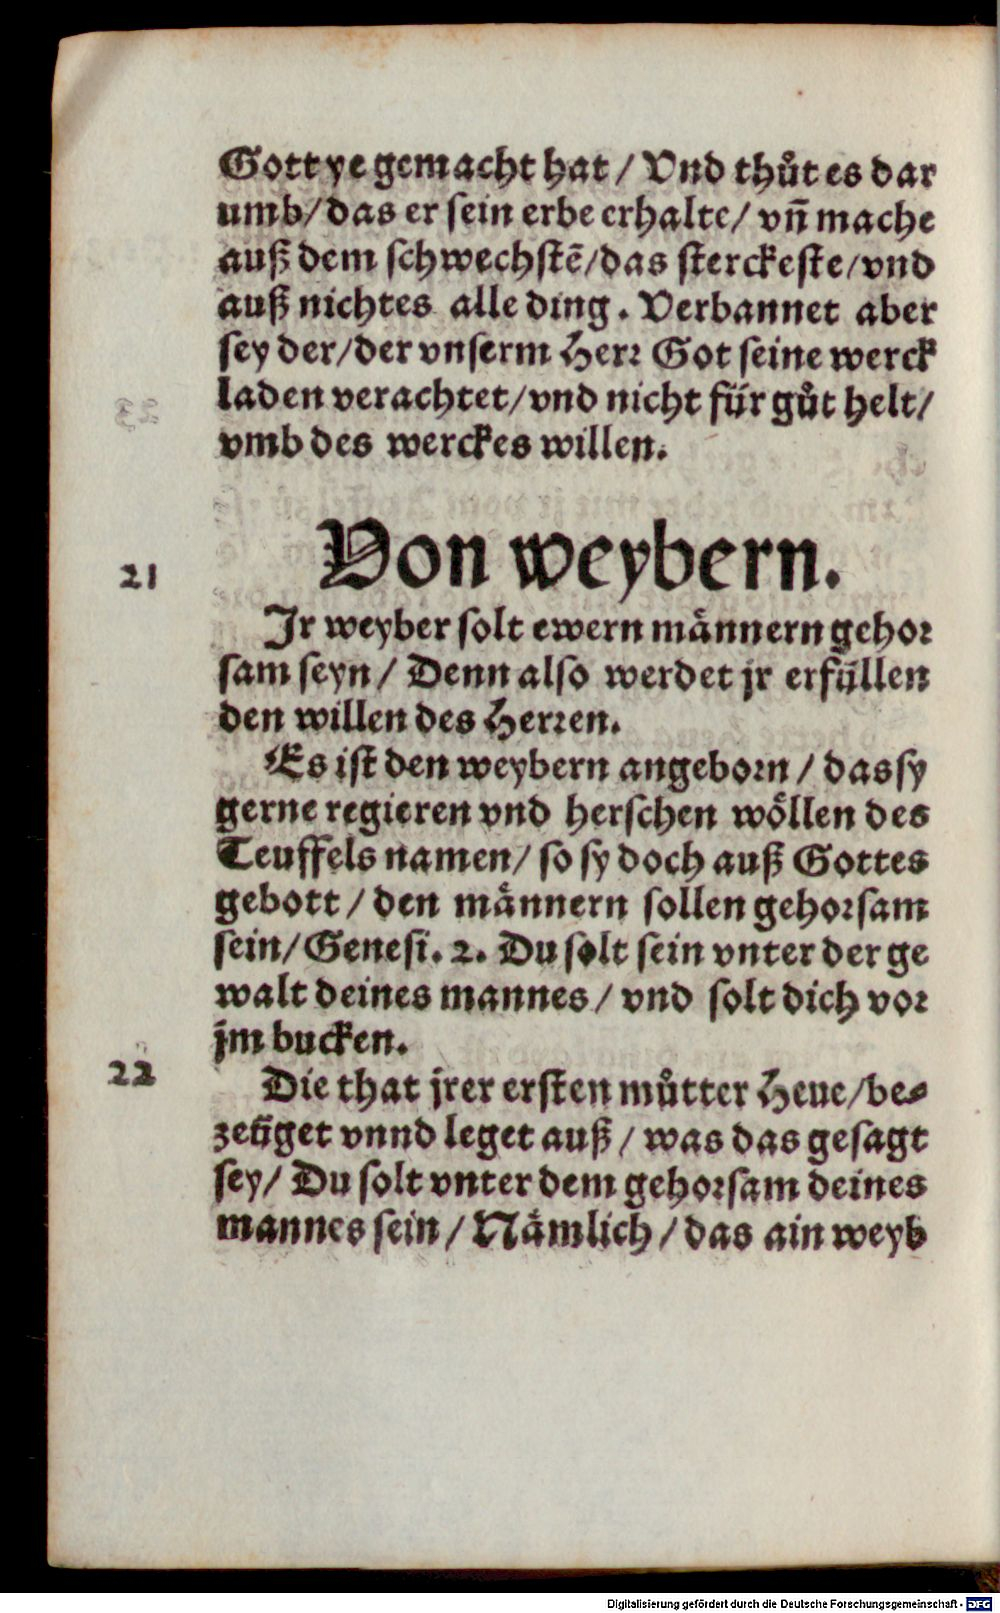 Gott ye gemacht hat / Vnd thůt es dar
umb / das er sein erbe erhalte / vn̄ mache
auß dem schwechstē / das sterckeste / vnd
auß nichtes alle ding . Verbannet aber
sey der / der vnserm Herr Got seine werck
laden verachtet / vnd nicht für gůt helt /
vmb des werckes willen.
21
Von weybern.
Jr weyber solt ewern männern gehor
sam seyn / Denn also werdet jr erfüllen
den willen des Herren.
Es ist den weybern angeborn / das sy
gerne regieren vnd herschen wöllen des
Teuffels namen / so sy doch auß Gottes
gebott / den männern sollen gehorsam
sein / Genesi. 2. Du solt sein vnter der ge
walt deines mannes / vnd solt dich vor
jm bucken.
22
Die that jrer ersten můtter Heue / be⸗
zeüget vnnd leget auß / was das gesagt
sey / Du solt vnter dem gehorsam deines
mannes sein / Nämlich / das ain weyb
Digitalisierung gefördert durch die Deutsche Forschungsgemeinschaft - DFG